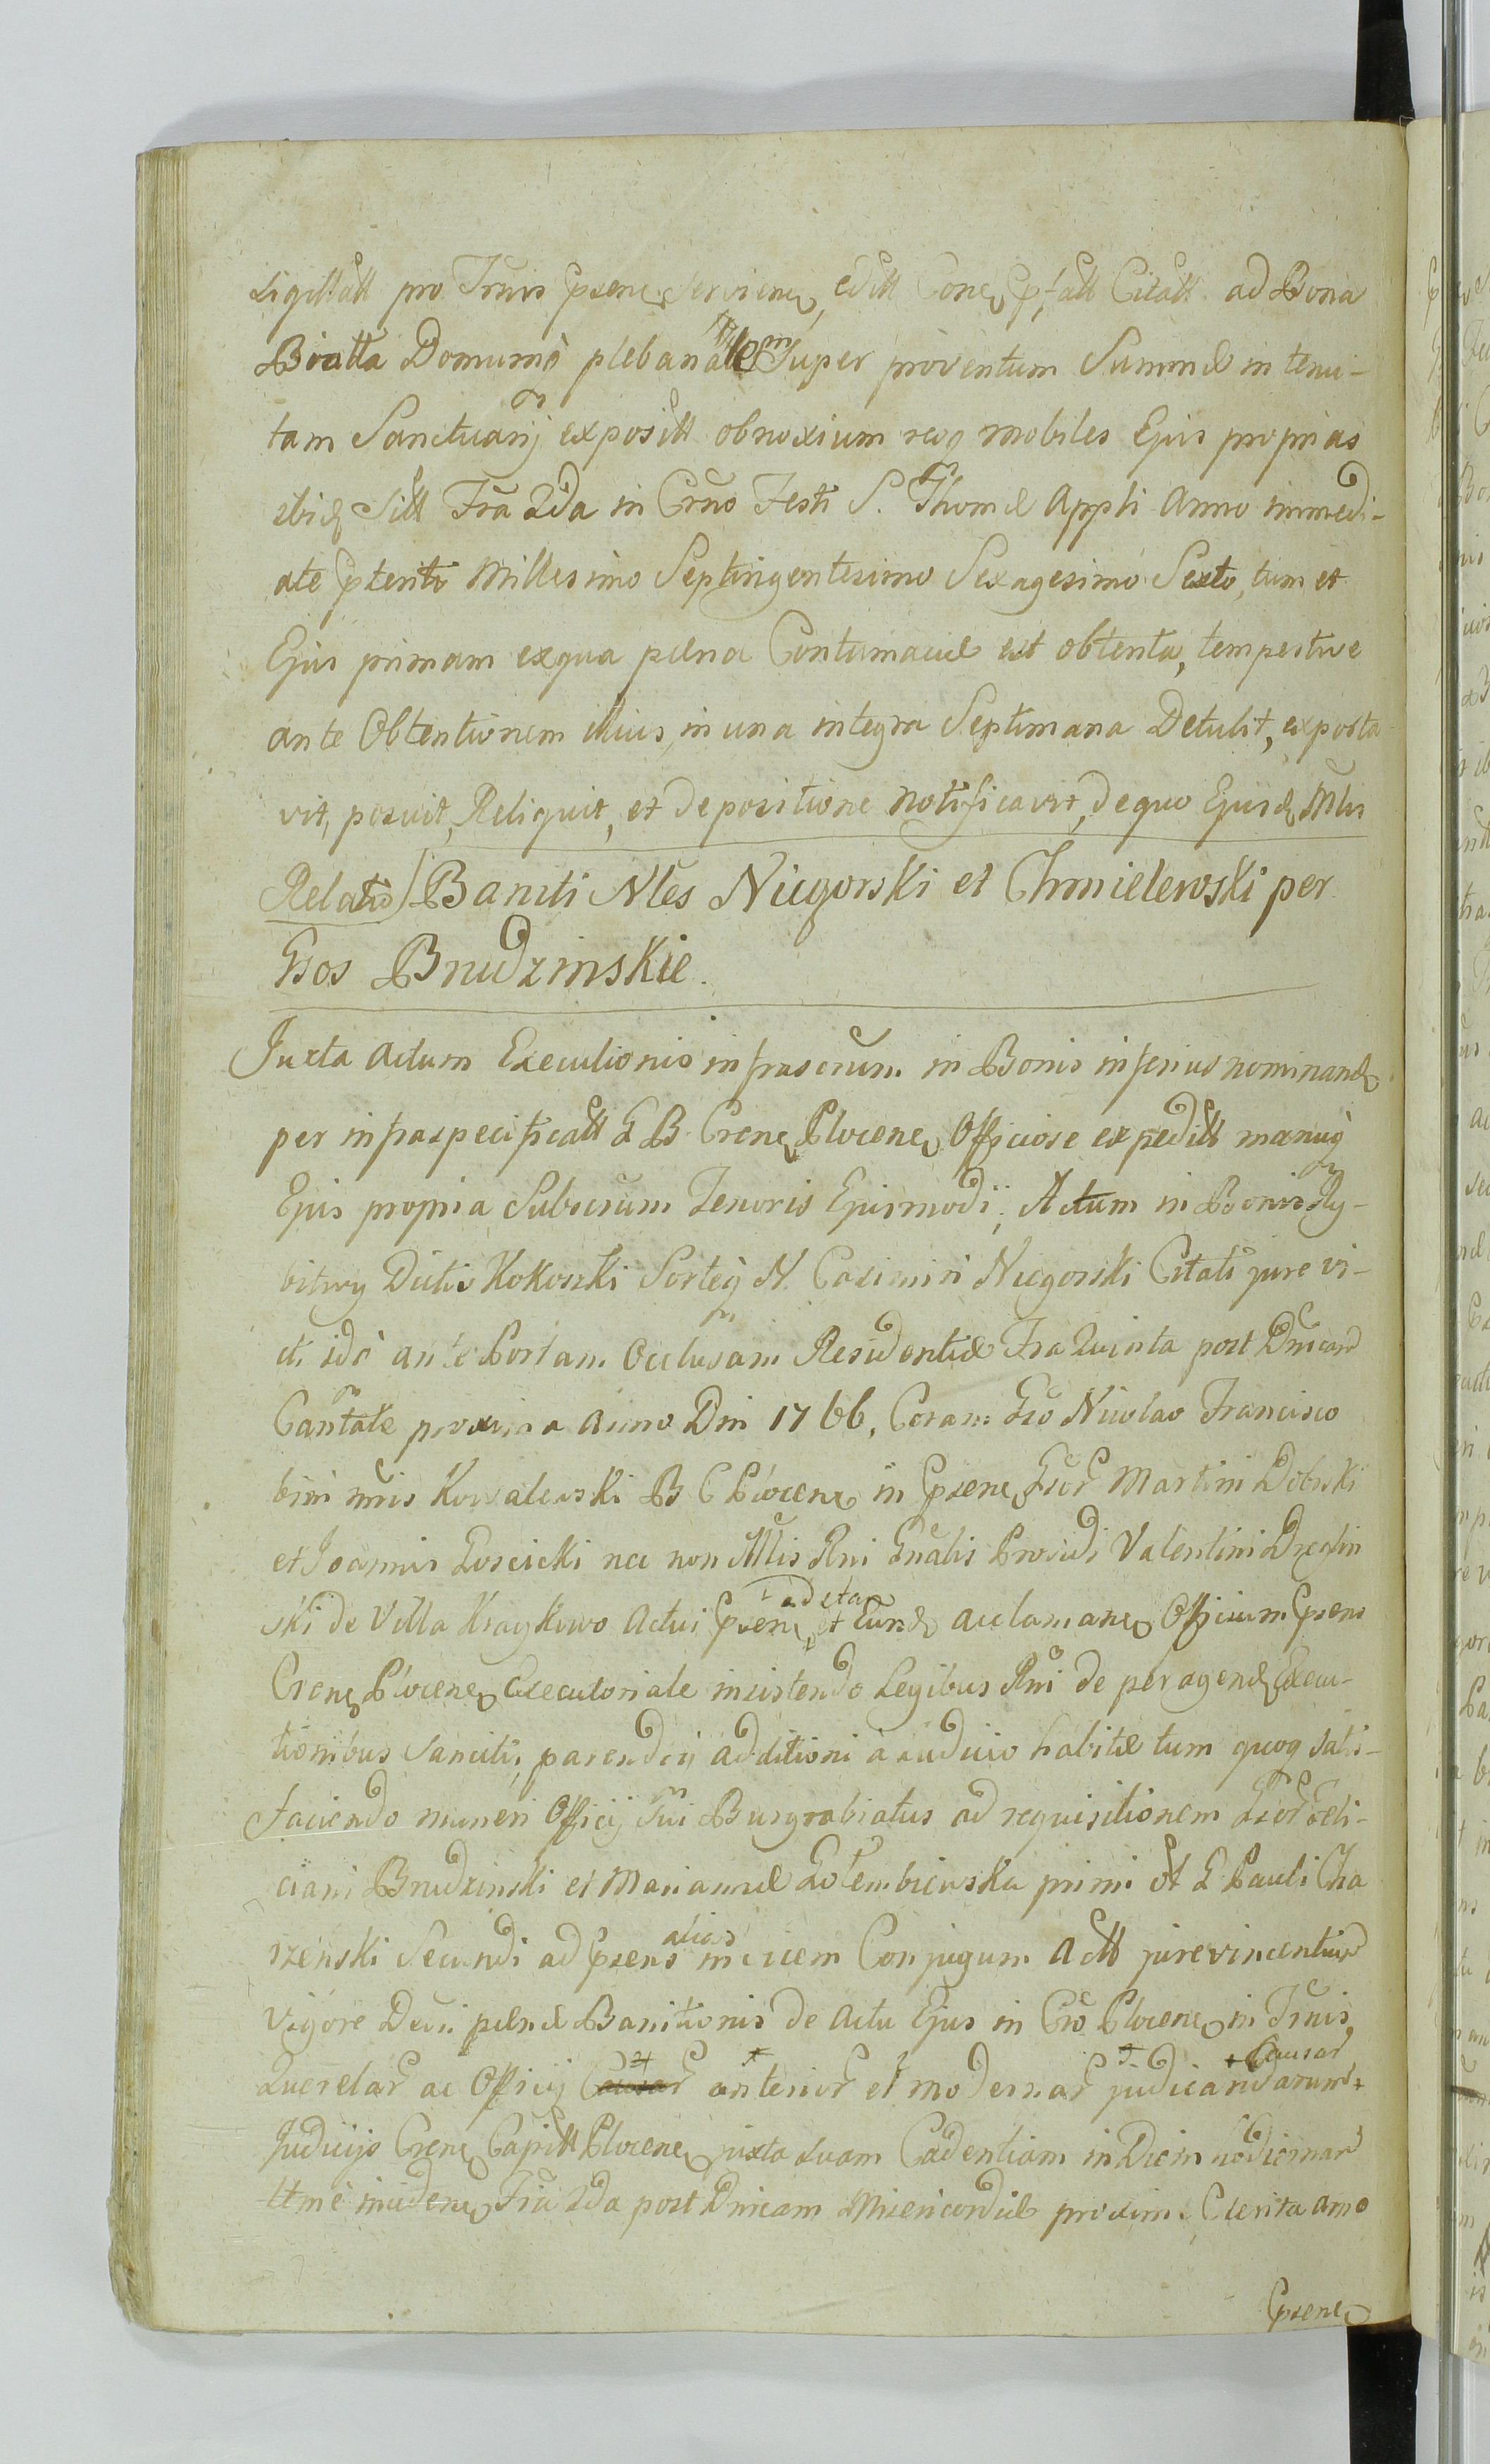 sigillatt pro Trnis Psene Serviene, editt Cone Ptatt Citatt ad Bona
Bialla Domumq plebanale Super proventum Summæ in tenu-
tam Sanctuarij expositt obnoxium resq mobiles Ejus proprias
ibid Sitt Fria 2da in Crno Festi S. Thomæ Appli Anno immedi-
ate Pterito Millesimo Septingentesimo Sexagesimo Sexto, tum et
Ejus primam exqua pæna Contumaciæ est obtenta, tempestive
ante Obtentionem illius, in una integra Septimana Detulit, exporta-
vit, posuit, Reliquit, et depositione notificavit, dequo Ejusd Mtri
Relatio) Baniti Nles Niegorski et Chmielewski per
Gsos Brudzinskie.
Juxta Actum Executionis infrascrum in Bonis inferius nominand
per infraspecificatt G B Crene Plocene Officiose expeditt manuq
Ejus propria Subscrum Tenoris Ejusmodi; Actum in Bonis Ry-
bitwy Dictis Kokoszki Sorteq N. Casimiri Niegorski Citati jure vi-
cti idq ante Portam Occlusam Residentiæ Fra Quinta post Dnicam
Cantate proxima Anno Dni 1766, Coram Gso Nicolao Francisco
bini nris Kowalewski B C Plocene in Psene Gsor Martini Dobrski
et Joannis Goscicki nec non Mtris Rni Gnalis Providi Valentini
ski de Villa Kraykowo Actui Psene adcta et Eund acclamane Officium Psens
Crene Plocene Executoriale insistendo Legibus Rni de peragend Execu-
tionibus Sancitis, parendoq additioni à Judicio habitæ tum quoq satis-
faciendo muneri Officij Sui Burgrabiatus ad requisitionem Gsor Feli-
ciani Brudzinski et Mariannæ Gotembiewska primi et G Pauli Cha
rzenski Secundi ad Psens alias invicem Conjugum Actt jurevincentium
vigore Decri pænæ Banitionis de Actu Ejus in Cro Plocene in Trnis
Querelar ac Officij Causar anterior et modernar judicandarum + Causar
Judicijs Crene Capittt Plocene juxta suam Cadentiam in Diem hodiernam
ttme incidene Fria 2da post Dnicam Misericordiæ proxime Pterita anno
Psene